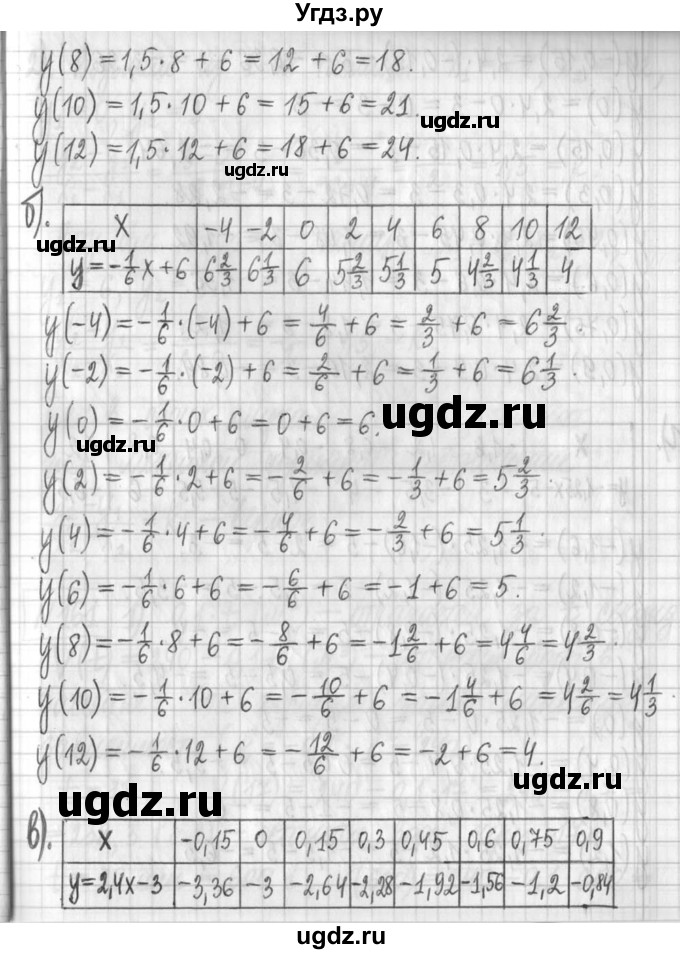 Угдз.ру
y(8)=1,5·8+6=12+6=18.
y(10)=1,5·10+6=15+6=21.
ugdz.ru
y(12)=1,5·12+6=18+6=24.
ugdz.ru
б).
x -4 -2 0 2 4 6 8 10 12
y=-1/6x+6 6 2/3 6 1/3 6 5 2/3 5 1/3 5 4 2/3 4 1/3 4
y(-4)=-1/6·(-4)+6=4/6+6=2/3+6=6 2/3.
y(-2)=-1/6·(-2)+6=2/6+6=1/3+6=6 1/3.
y(0)=-1/6·0+6=0+6=6.
ugdz.ru
ugdz.ru
y(2)=-1/6·2+6=-2/6+6=-1/3+6=5 2/3.
y(4)=-1/6·4+6=-4/6+6=-2/3+6=5 1/3.
y(6)=-1/6·6+6=-6/6+6=-1+6=5.
y(8)=-1/6·8+6=-8/6+6=-1 2/6+6=4 4/6=4 2/3.
y(10)=-1/6·10+6=-10/6+6=-1 4/6+6=4 2/6=4 1/3.
y(12)=-1/6·12+6=-12/6+6=-2+6=4.
ugdz.ru
ugdz.ru
в).
x -0,15 0 0,15 0,3 0,45 0,6 0,75 0,9
y=2,4x-3 -3,36 -3 -2,64 -2,28 -1,92 -1,56 -1,2 -0,84
ugdz.ru